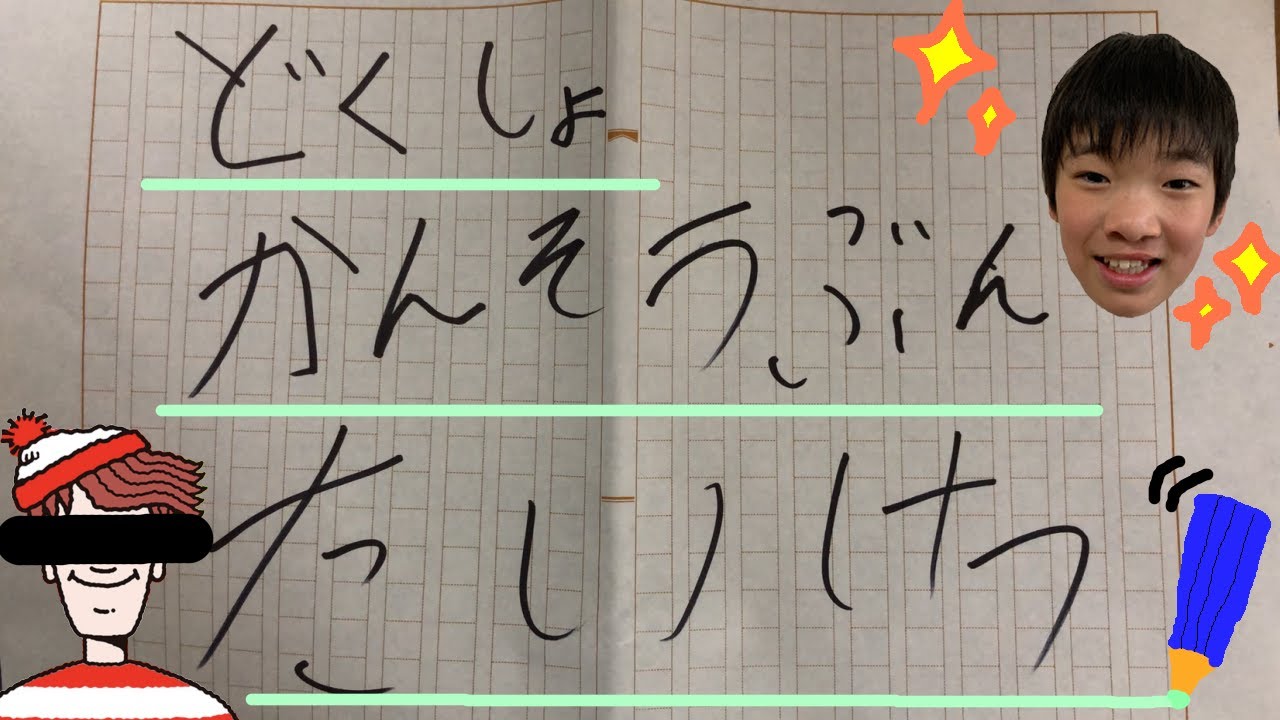 どくしょ
かんそうぶん
たいけつ